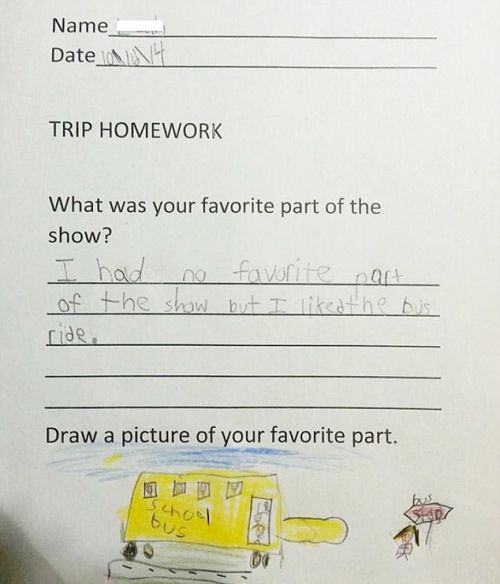 Name
Date
TRIP HOMEWORK
What was your favorite part of the
show?
I had no favorite part
of the show but I liked the bus
ride.
Draw a picture of your favorite part.
School
bus
bus
STOP